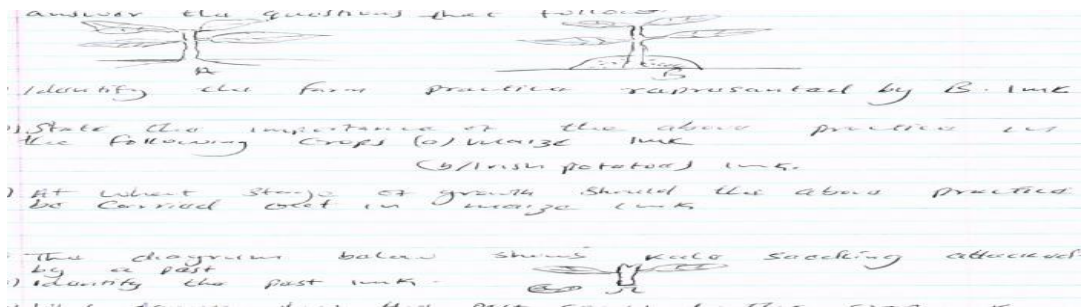 answer the questions that follow
A
B
Identify the farm practice represented by B. 1mk
State the importance of the above practice in
the following crops (a) maize 1mk
(b) Irish potatoes 1mk.
At what stage of growth should the above practice
be carried out in maize 1mk
The diagram below shows kale seedling attacked
by a pest
Identify the pest 1mk.